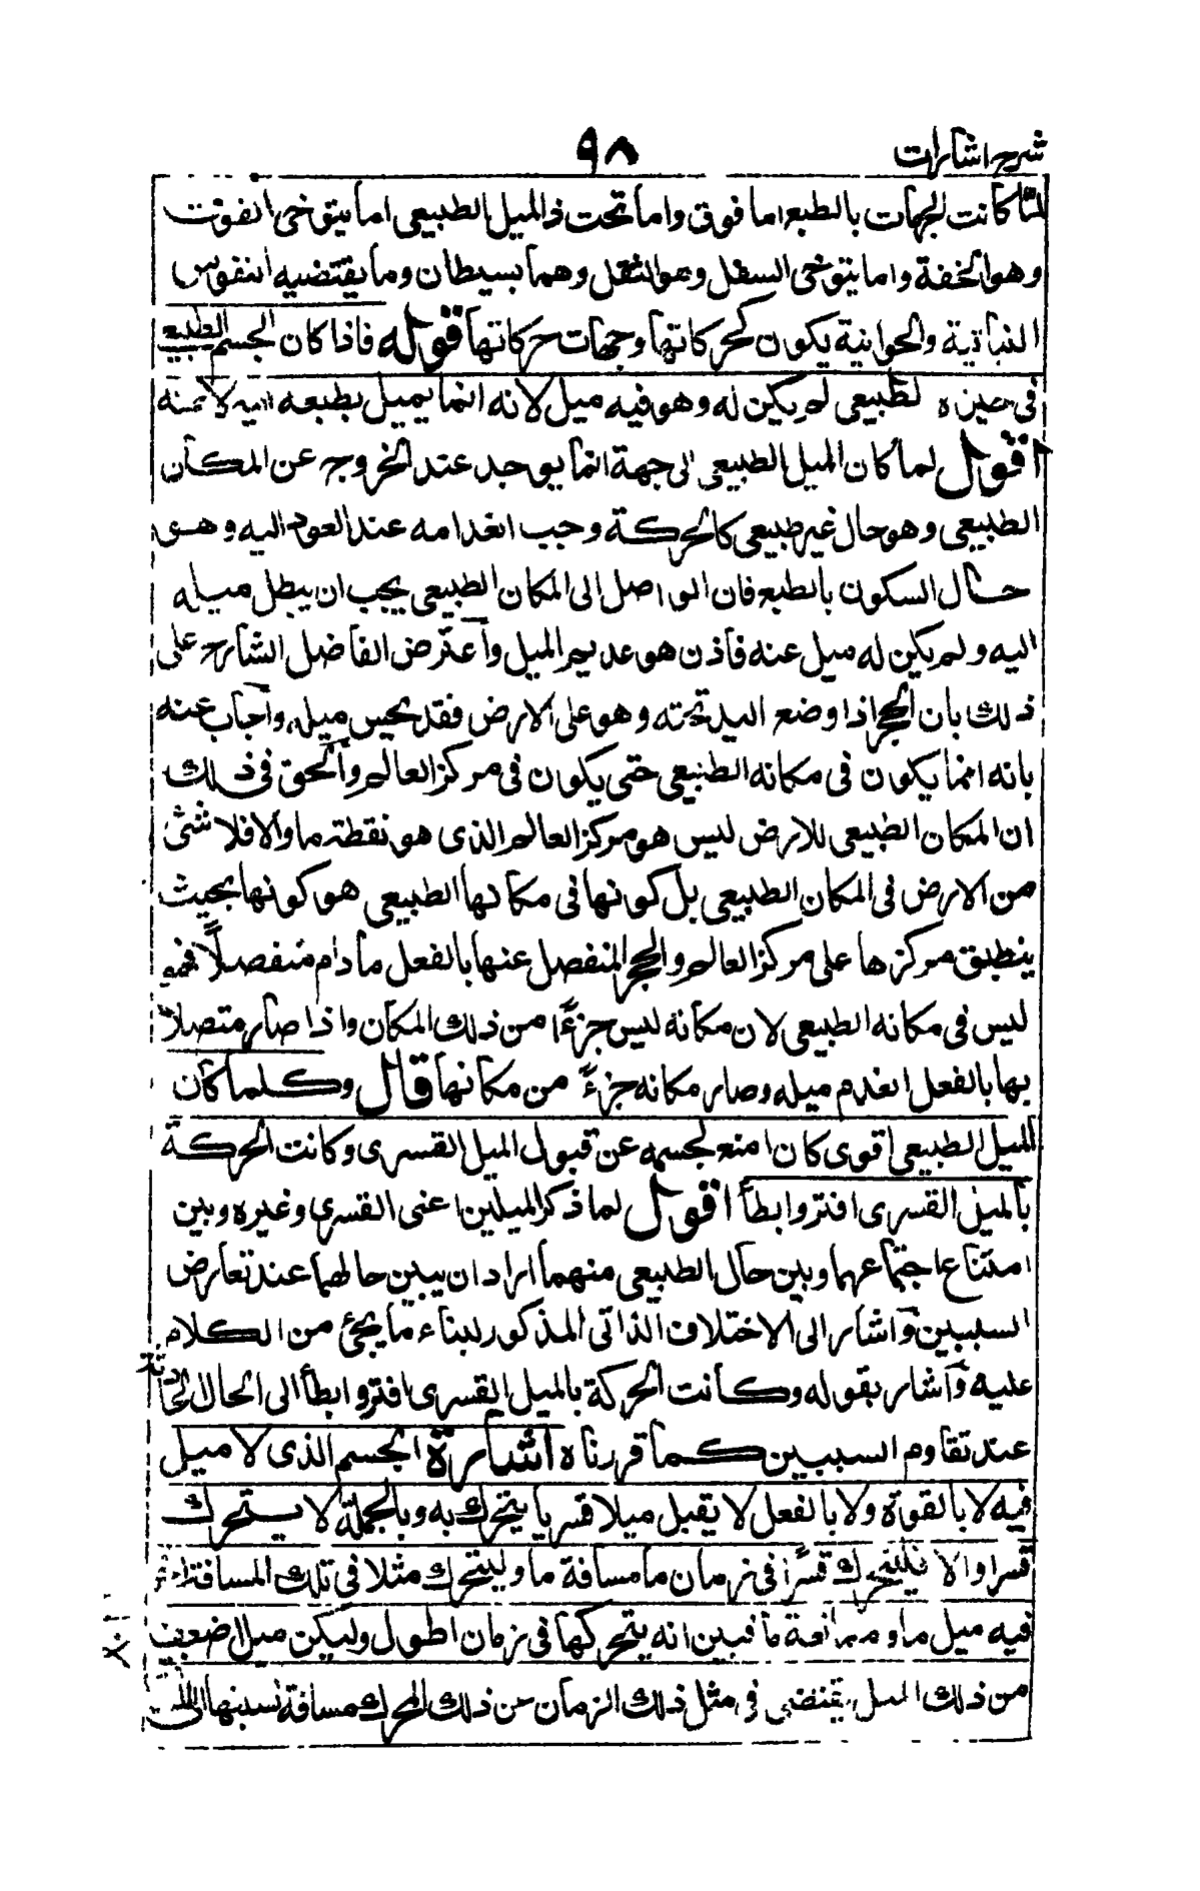 شرح اشارات
٩٨
لما كانت الجهات بالطبع اما فوق واما تحت فالميل الطبيعى اما يتوخى الفوق
وهو الخفة واما يتوخى السفل وهو الثقل وهما بسيطان وما يقتضيه النفوس
النباتية والحيوانية يكون كحركاتها وجهات حركاتها قوله فاذا كان الجسم الطبيعى
فى حيزه الطبيعى لم يكن له وهو فيه ميل لانه انما يميل بطبعه اليه لا عنه
اقول لما كان الميل الطبيعى الى جهة انما يوجد عند الخروج عن المكان
الطبيعى وهو حال غير طبيعى كالحركة وجب انعدامه عند العود اليه وهو
حال السكون بالطبع فان الواصل الى المكان الطبيعى يجب ان يبطل ميله
اليه ولم يكن له ميل عنه فاذن هو عديم الميل واعترض الفاضل الشارح على
ذلك بان الحجر اذا وضع اليد تحته وهو على الارض فقد يحس ميله واجاب عنه
بانه انما يكون فى مكانه الطبيعى حتى يكون فى مركز العالم والحق فى ذلك
ان المكان الطبيعى للارض ليس هو مركز العالم الذى هو نقطة ما والا فلا شئ
من الارض فى المكان الطبيعى بل كونها فى مكانها الطبيعى هو كونها بحيث
ينطبق مركزها على مركز العالم والحجر المنفصل عنها بالفعل ما دام منفصلا فهو
ليس فى مكانه الطبيعى لان مكانه ليس جزءًا من ذلك المكان واذا صار متصلا
بها بالفعل انعدم ميله وصار مكانه جزءً من مكانها قال وكلما كان
الميل الطبيعى اقوى كان امنع لجسمه عن قبول الميل القسرى وكانت الحركة
بالميل القسرى افتر وابطأ اقول لما ذكر الميلين اعنى القسرى وغيره وبين
امتناع اجتماعهما وبين حال الطبيعى منهما اراد ان يبين حالهما عند تعارض
السببين واشار الى الاختلاف الذاتى المذكور لبناء ما يجئ من الكلام
عليه واشار بقوله وكانت الحركة بالميل القسرى افتر وابطأ الى الحال الحادثة
عند تقاوم السببين كما قررناه اشارة الجسم الذى لا ميل
فيه لا بالقوة ولا بالفعل لا يقبل ميلا قسريا يتحرك به وبالجملة لا يتحرك
قسرا والا فليتحرك قسرًا فى زمان ما مسافة ما وليتحرك مثلا فى تلك المسافة
فيه ميل ما وممانعة ما فبين انه يتحركها فى زمان اطول وليكن ميل اضعف
من ذلك الميل يقتضى فى مثل ذلك الزمان من ذلك المحرك مسافة نسبتها الى